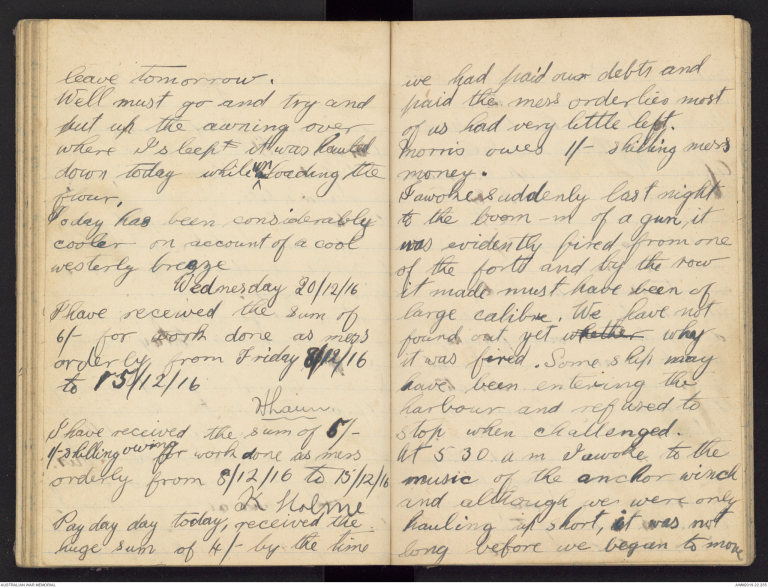 leave tomorrow.
Well must go and try and
put up the awning over
where I sleep it was hauled
down today while unloading the
flour.
Today has been considerably
cooler on account of a cool
westerly breeze
Wednesday 20/12/16
I have received the sum of
6/- for work done as mess
orderly from Friday 8/12/16
to 15/12/16
I have received the sum of 5/-
1/- shilling owing for work done as mess
orderly from 8/12/16 to 15/12/16
K Holme
Pay day day today, received the
huge sum of 4/- by the time
we had paid our debts and
paid the mess orderlies most
of us had very little left.
Morris owes 1/- shilling mess
money.
I awoke suddenly last night
to the boom-m of a gun, it
was evidently fired from one
of the forts and by the row
it made must have been of
large calibre. We have not
found out yet whether why
it was fired. Some ship may
have been entering the
harbour and refused to
stop when challenged.
At 5 30 a m I awoke to the
music of the anchor winch
and although we were only
hauling up short, it was not
long before we began to move
AUSTRALIAN WAR MEMORIAL